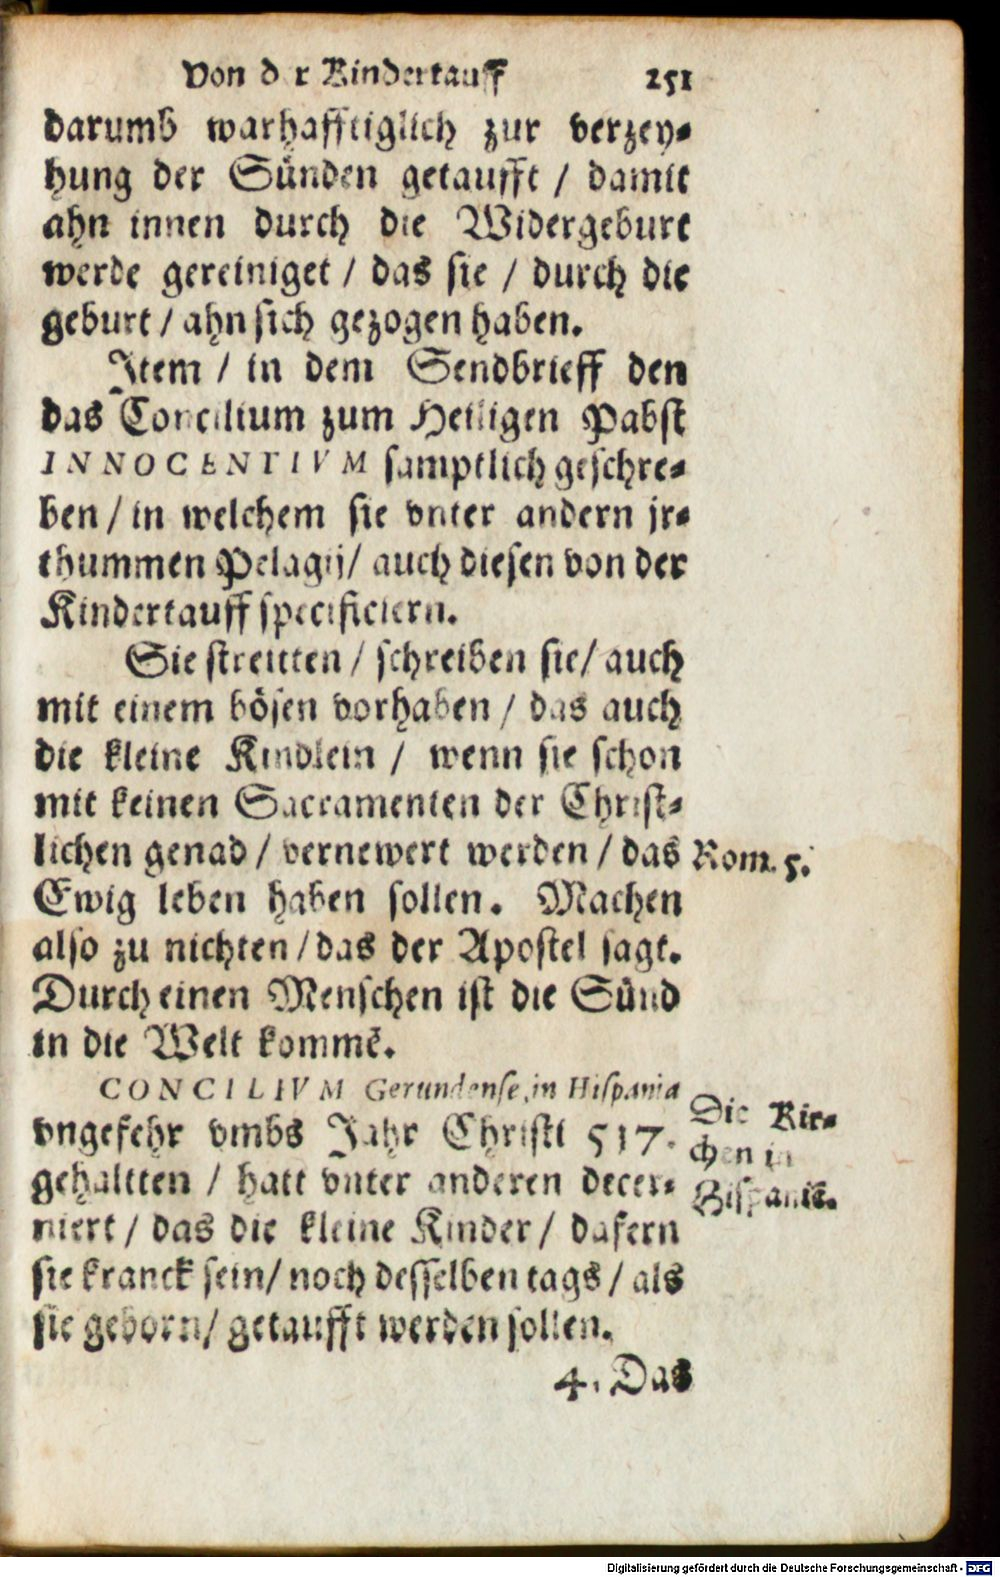 Von d r Kindertauff 251
darumb warhafftiglich zur verzey-
hung der Sünden getaufft / damit
ahn innen durch die Widergeburt
werde gereiniget / das sie / durch die
geburt / ahn sich gezogen haben.
Item / in dem Sendbrieff den
das Concilium zum Heiligen Pabst
INNOCENTIVM samptlich geschre-
ben / in welchem sie vnter andern jr-
thummen Pelagij / auch diesen von der
Kindertauff specificiern.
Sie streitten / schreiben sie / auch
mit einem bösen vorhaben / das auch
die kleine Kindlein / wenn sie schon
mit keinen Sacramenten der Christ-
lichen genad / vernewert werden / das
Rom. 5.
Ewig leben haben sollen. Machen
also zu nichten / das der Apostel sagt.
Durch einen Menschen ist die Sünd
in die Welt kommē.
CONCILIVM Gerundense, in Hispania
vngefehr vmbs Jahr Christi 517.
gehaltten / hatt vnter anderen decer-
niert / das die kleine Kinder / dafern
sie kranck sein / noch desselben tags / als
sie geborn / getaufft werden sollen.
Die Kir-
chen in
Hispaniē.
4. Das
Digitalisierung gefördert durch die Deutsche Forschungsgemeinschaft - DFG